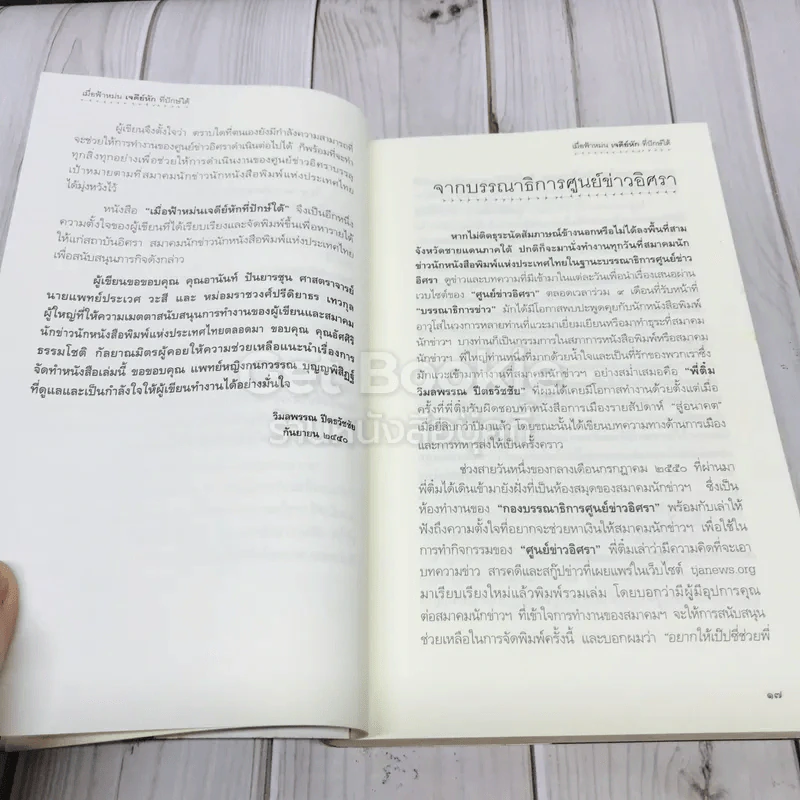 เมื่อฟ้าหม่น เจดีย์หัก ที่ปักษ์ใต้
ผู้เขียนจึงตั้งใจว่า ตราบใดที่ตนเองยังมีกำลังความสามารถที่
จะช่วยให้การทำงานของศูนย์ข่าวอิศราดำเนินต่อไปได้ ก็พร้อมที่จะทำ
ทุกสิ่งทุกอย่างเพื่อช่วยให้การดำเนินงานของศูนย์ข่าวอิศราบรรลุ
เป้าหมายตามที่สมาคมนักข่าวนักหนังสือพิมพ์แห่งประเทศไทย
ได้มุ่งหวังไว้
หนังสือ “เมื่อฟ้าหม่นเจดีย์หักที่ปักษ์ใต้” จึงเป็นอีกหนึ่ง
ความตั้งใจของผู้เขียนที่ได้เรียบเรียงและจัดพิมพ์ขึ้นเพื่อหารายได้
ให้แก่สถาบันอิศรา สมาคมนักข่าวนักหนังสือพิมพ์แห่งประเทศไทย
เพื่อสนับสนุนภารกิจดังกล่าว
ผู้เขียนขอขอบคุณ คุณอานันท์ ปันยารชุน ศาสตราจารย์
นายแพทย์ประเวศ วะสี และ หม่อมราชวงศ์ปรีดิยาธร เทวกุล
ผู้ใหญ่ที่ให้ความเมตตาสนับสนุนการทำงานของผู้เขียนและสมาคม
นักข่าวนักหนังสือพิมพ์แห่งประเทศไทยตลอดมา ขอบคุณ คุณอัศศิริ
ธรรมโชติ กัลยาณมิตรผู้คอยให้ความช่วยเหลือแนะนำเรื่องการ
จัดทำหนังสือเล่มนี้ ขอขอบคุณ แพทย์หญิงกนกวรรณ บุญญพิสิฏฐ์
ที่ดูแลและเป็นกำลังใจให้ผู้เขียนทำงานได้อย่างมั่นใจ
วิมลพรรณ ปีตธวัชชัย
กันยายน ๒๕๕๐
เมื่อฟ้าหม่น เจดีย์หัก ที่ปักษ์ใต้
จากบรรณาธิการศูนย์ข่าวอิศรา
หากไม่ติดธุระนัดสัมภาษณ์ข้างนอกหรือไม่ได้ลงพื้นที่สาม
จังหวัดชายแดนภาคใต้ ปกติก็จะมานั่งทำงานทุกวันที่สมาคมนัก
ข่าวนักหนังสือพิมพ์แห่งประเทศไทยในฐานะบรรณาธิการศูนย์ข่าว
อิศรา ดูข่าวและบทความที่มีเข้ามาในแต่ละวันเพื่อนำเรื่องเสนอผ่าน
เวบไซต์ของ “ศูนย์ข่าวอิศรา” ตลอดเวลาร่วม ๙ เดือนที่รับหน้าที่
“บรรณาธิการข่าว” มักได้มีโอกาสพบปะพูดคุยกับนักหนังสือพิมพ์
อาวุโสในวงการหลายท่านที่แวะมาเยี่ยมเยียนหรือมาทำธุระที่สมาคม
นักข่าวฯ บางท่านก็เป็นกรรมการในสภาการหนังสือพิมพ์หรือสมาคม
นักข่าวฯ พี่ใหญ่ท่านหนึ่งที่มากด้วยน้ำใจและเป็นที่รักของพวกเราซึ่ง
มักแวะเข้ามาทำงานที่สมาคมนักข่าวฯ อย่างสม่ำเสมอคือ “พี่ติ๋ม
วิมลพรรณ ปีตธวัชชัย” ที่ผมได้เคยมีโอกาสทำงานด้วยตั้งแต่เมื่อ
ครั้งที่พี่ติ๋มรับผิดชอบทำหนังสือการเมืองรายสัปดาห์ “สู่อนาคต”
เมื่อยี่สิบกว่าปีมาแล้ว โดยขณะนั้นได้เขียนบทความทางด้านการเมือง
และการทหารส่งให้เป็นครั้งคราว
ช่วงสายวันหนึ่งของกลางเดือนกรกฎาคม ๒๕๕๐ ที่ผ่านมา
พี่ติ๋มได้เดินเข้ามายังฝั่งที่เป็นห้องสมุดของสมาคมนักข่าวฯ ซึ่งเป็น
ห้องทำงานของ “กองบรรณาธิการศูนย์ข่าวอิศรา” พร้อมกับเล่าให้
ฟังถึงความตั้งใจที่อยากจะช่วยหาเงินให้สมาคมนักข่าวฯ เพื่อใช้ใน
การทำกิจกรรมของ “ศูนย์ข่าวอิศรา” พี่ติ๋มเล่าว่ามีความคิดที่จะเอา
บทความข่าว สารคดีและสกู๊ปข่าวที่เผยแพร่ในเว็บไซต์ tjanews.org
มาเรียบเรียงใหม่แล้วพิมพ์รวมเล่ม โดยบอกว่ามีผู้มีอุปการคุณ
ต่อสมาคมนักข่าวฯ ที่เข้าใจการทำงานของสมาคมฯ จะให้การสนับสนุน
ช่วยเหลือในการจัดพิมพ์ครั้งนี้ และบอกผมว่า “อยากให้เป๊ปซี่ช่วยพี่
๑๗
Get Books
ร้านหนังสือบุ๊ค